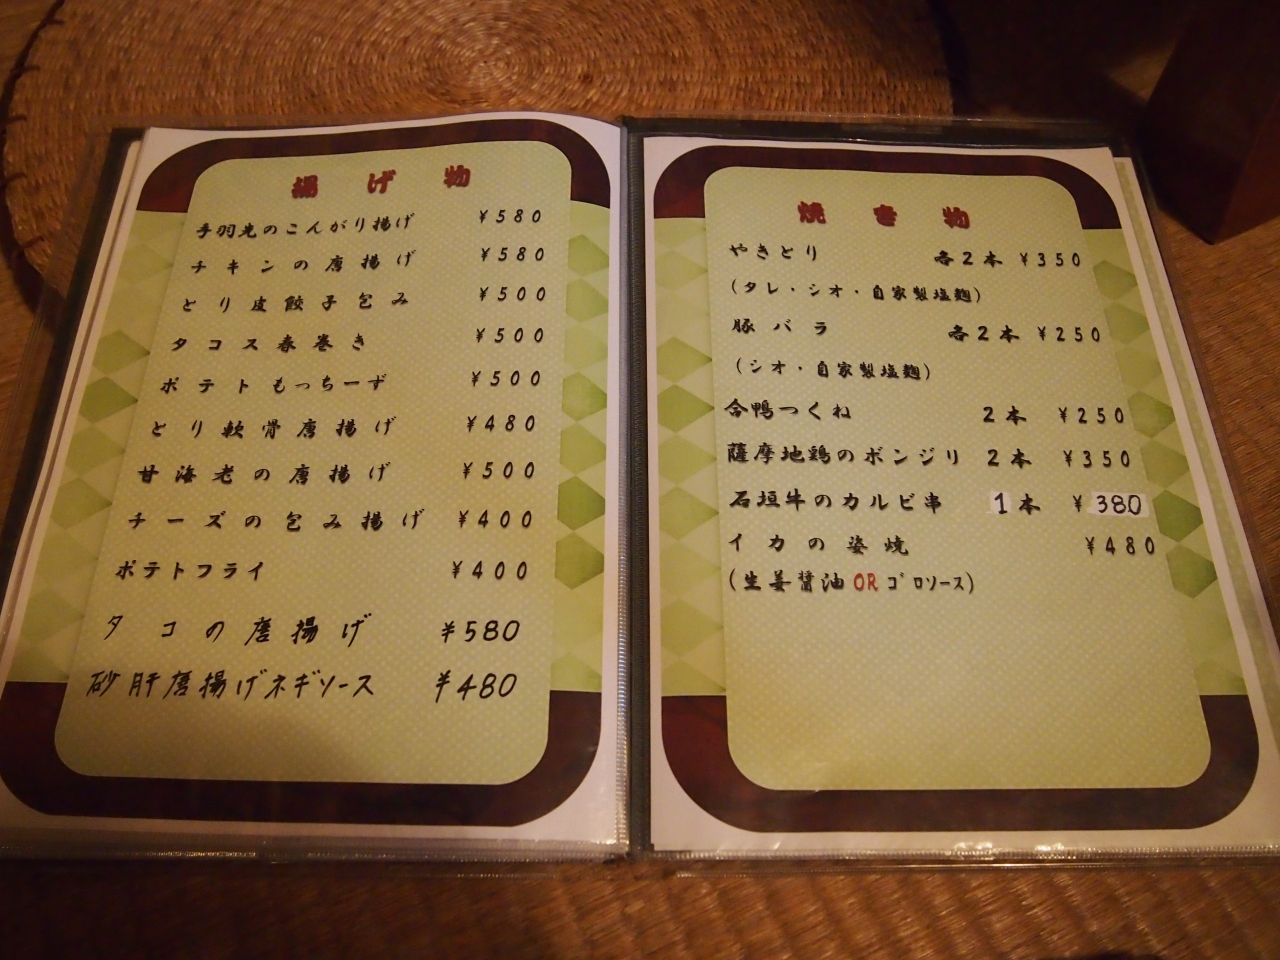 揚げ物
手羽先のこんがり揚げ ¥580
チキンの唐揚げ ¥580
とり皮餃子包み ¥500
タコス春巻き ¥500
ポテトもっちーず ¥500
とり軟骨唐揚げ ¥480
甘海老の唐揚げ ¥500
チーズの包み揚げ ¥400
ポテトフライ ¥400
タコの唐揚げ ¥580
砂肝唐揚げネギソース ¥480
焼き物
やきとり 各2本 ¥350
(タレ・シオ・自家製塩麹)
豚バラ 各2本 ¥250
(シオ・自家製塩麹)
合鴨つくね 2本 ¥250
薩摩地鶏のボンジリ 2本 ¥350
石垣牛のカルビ串 1本 ¥380
イカの姿焼 ¥480
(生姜醤油ORゴロソース)